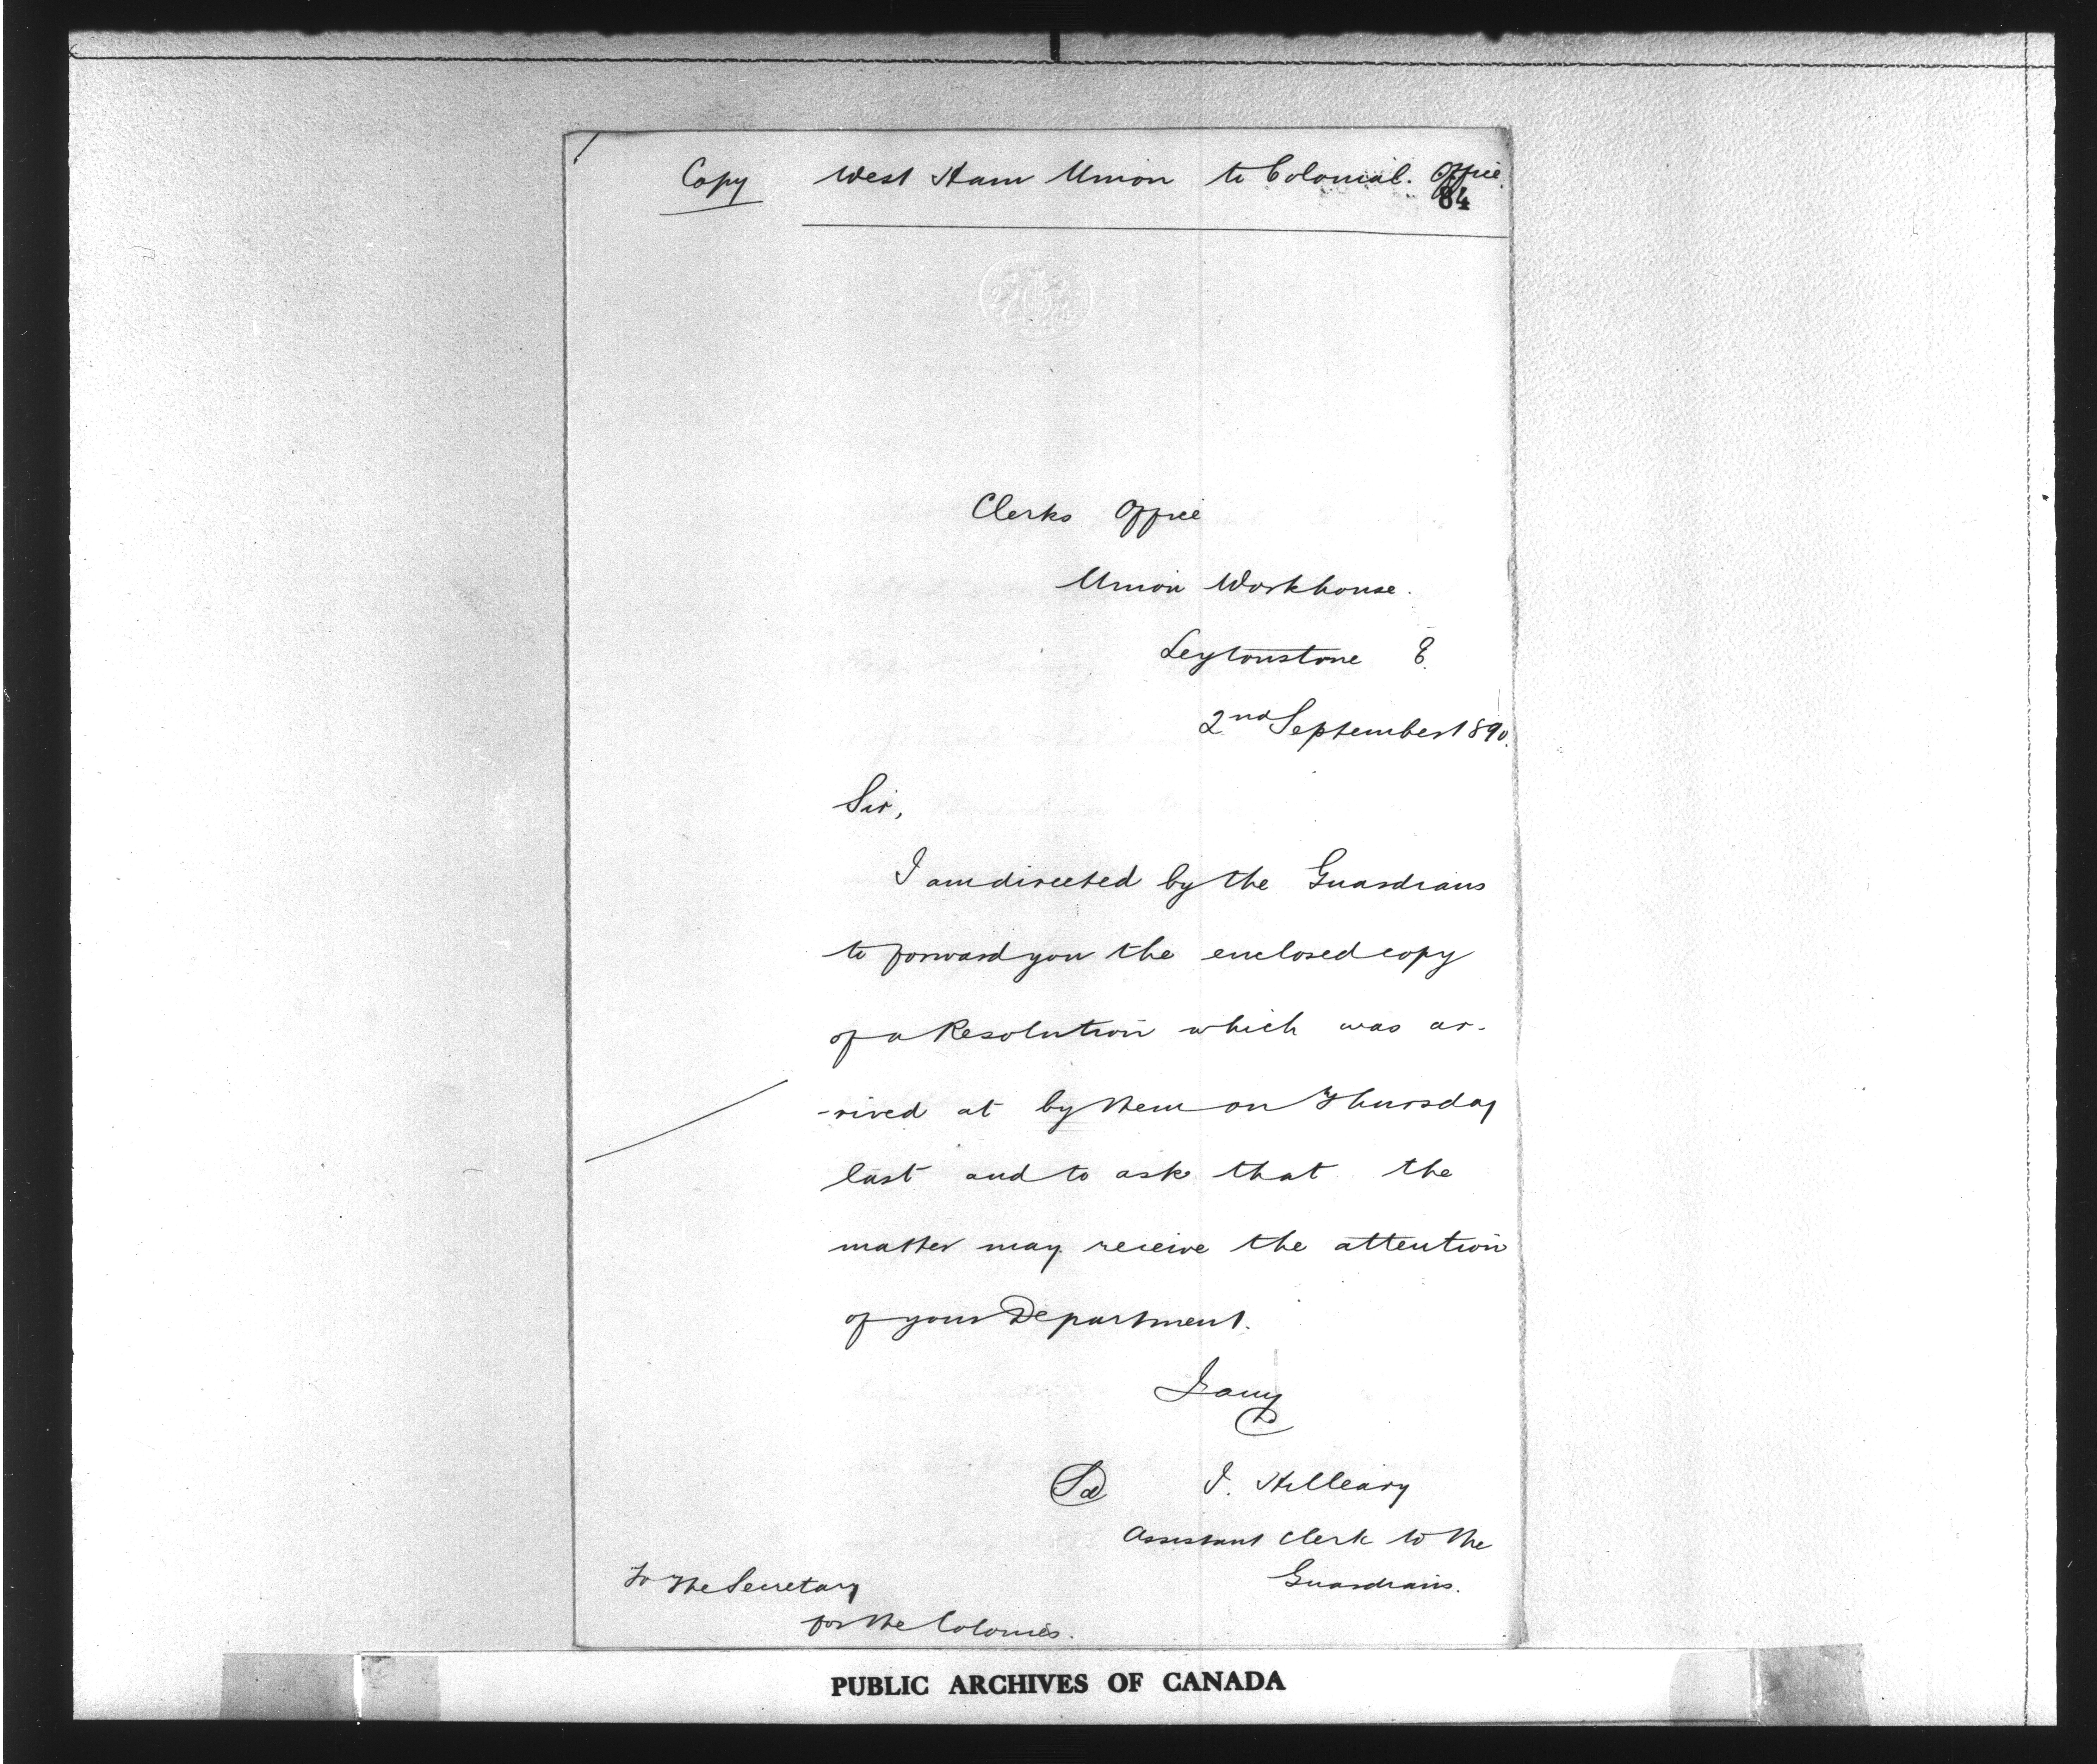 Copy West Ham Union to Colonial. Office.
84
Clerks Office
Union Workhouse.
Leytonstone E.
2nd September 1890.
Sir,
I am directed by the Guardians
to forward you the enclosed copy
of a Resolution which was ar-
-rived at by them on Thursday
last and to ask that the
matter may receive the attention
of your Department.
I am
Sd J. Hilleary
Assistant Clerk to the
Guardians.
To The Secretary
for the Colonies.
PUBLIC ARCHIVES OF CANADA